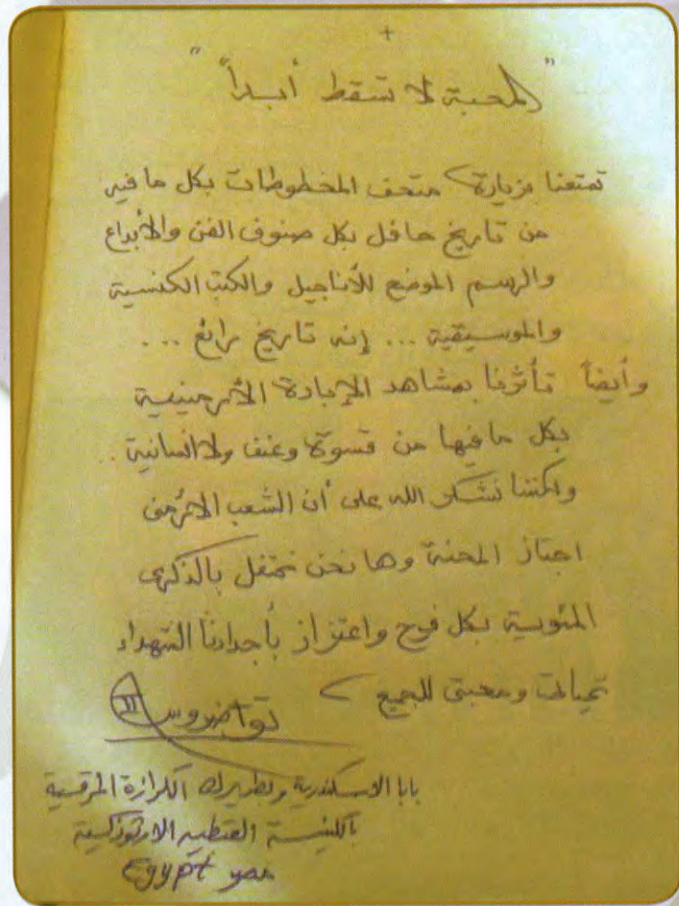 +
"المحبة لا تسقط أبداً"
تمتعنا بزيارة متحف المخطوطات بكل ما فيه
من تاريخ حافل بكل صنوف الفن والأبداع
والرسم الموضح للأناجيل والكتب الكنسية
والموسيقية ... إنه تاريخ رائع ...
وأيضاً تأثرنا بمشاهد الإبادة الأرمينية
بكل ما فيها من قسوة وعنف ولا انسانية ..
ولكننا نشكر الله على أن الشعب الأرمنى
اجتاز المحنة وها نحن نحتفل بالذكرى
المئوية بكل فرح واعتزاز بأجدادنا الشهداء
تحياتى ومحبتى للجميع
تواضروس II
بابا الاسكندرية وبطريرك الكرازة المرقسية
بالكنيسة القبطية الارثوذكسية
مصر Egypt